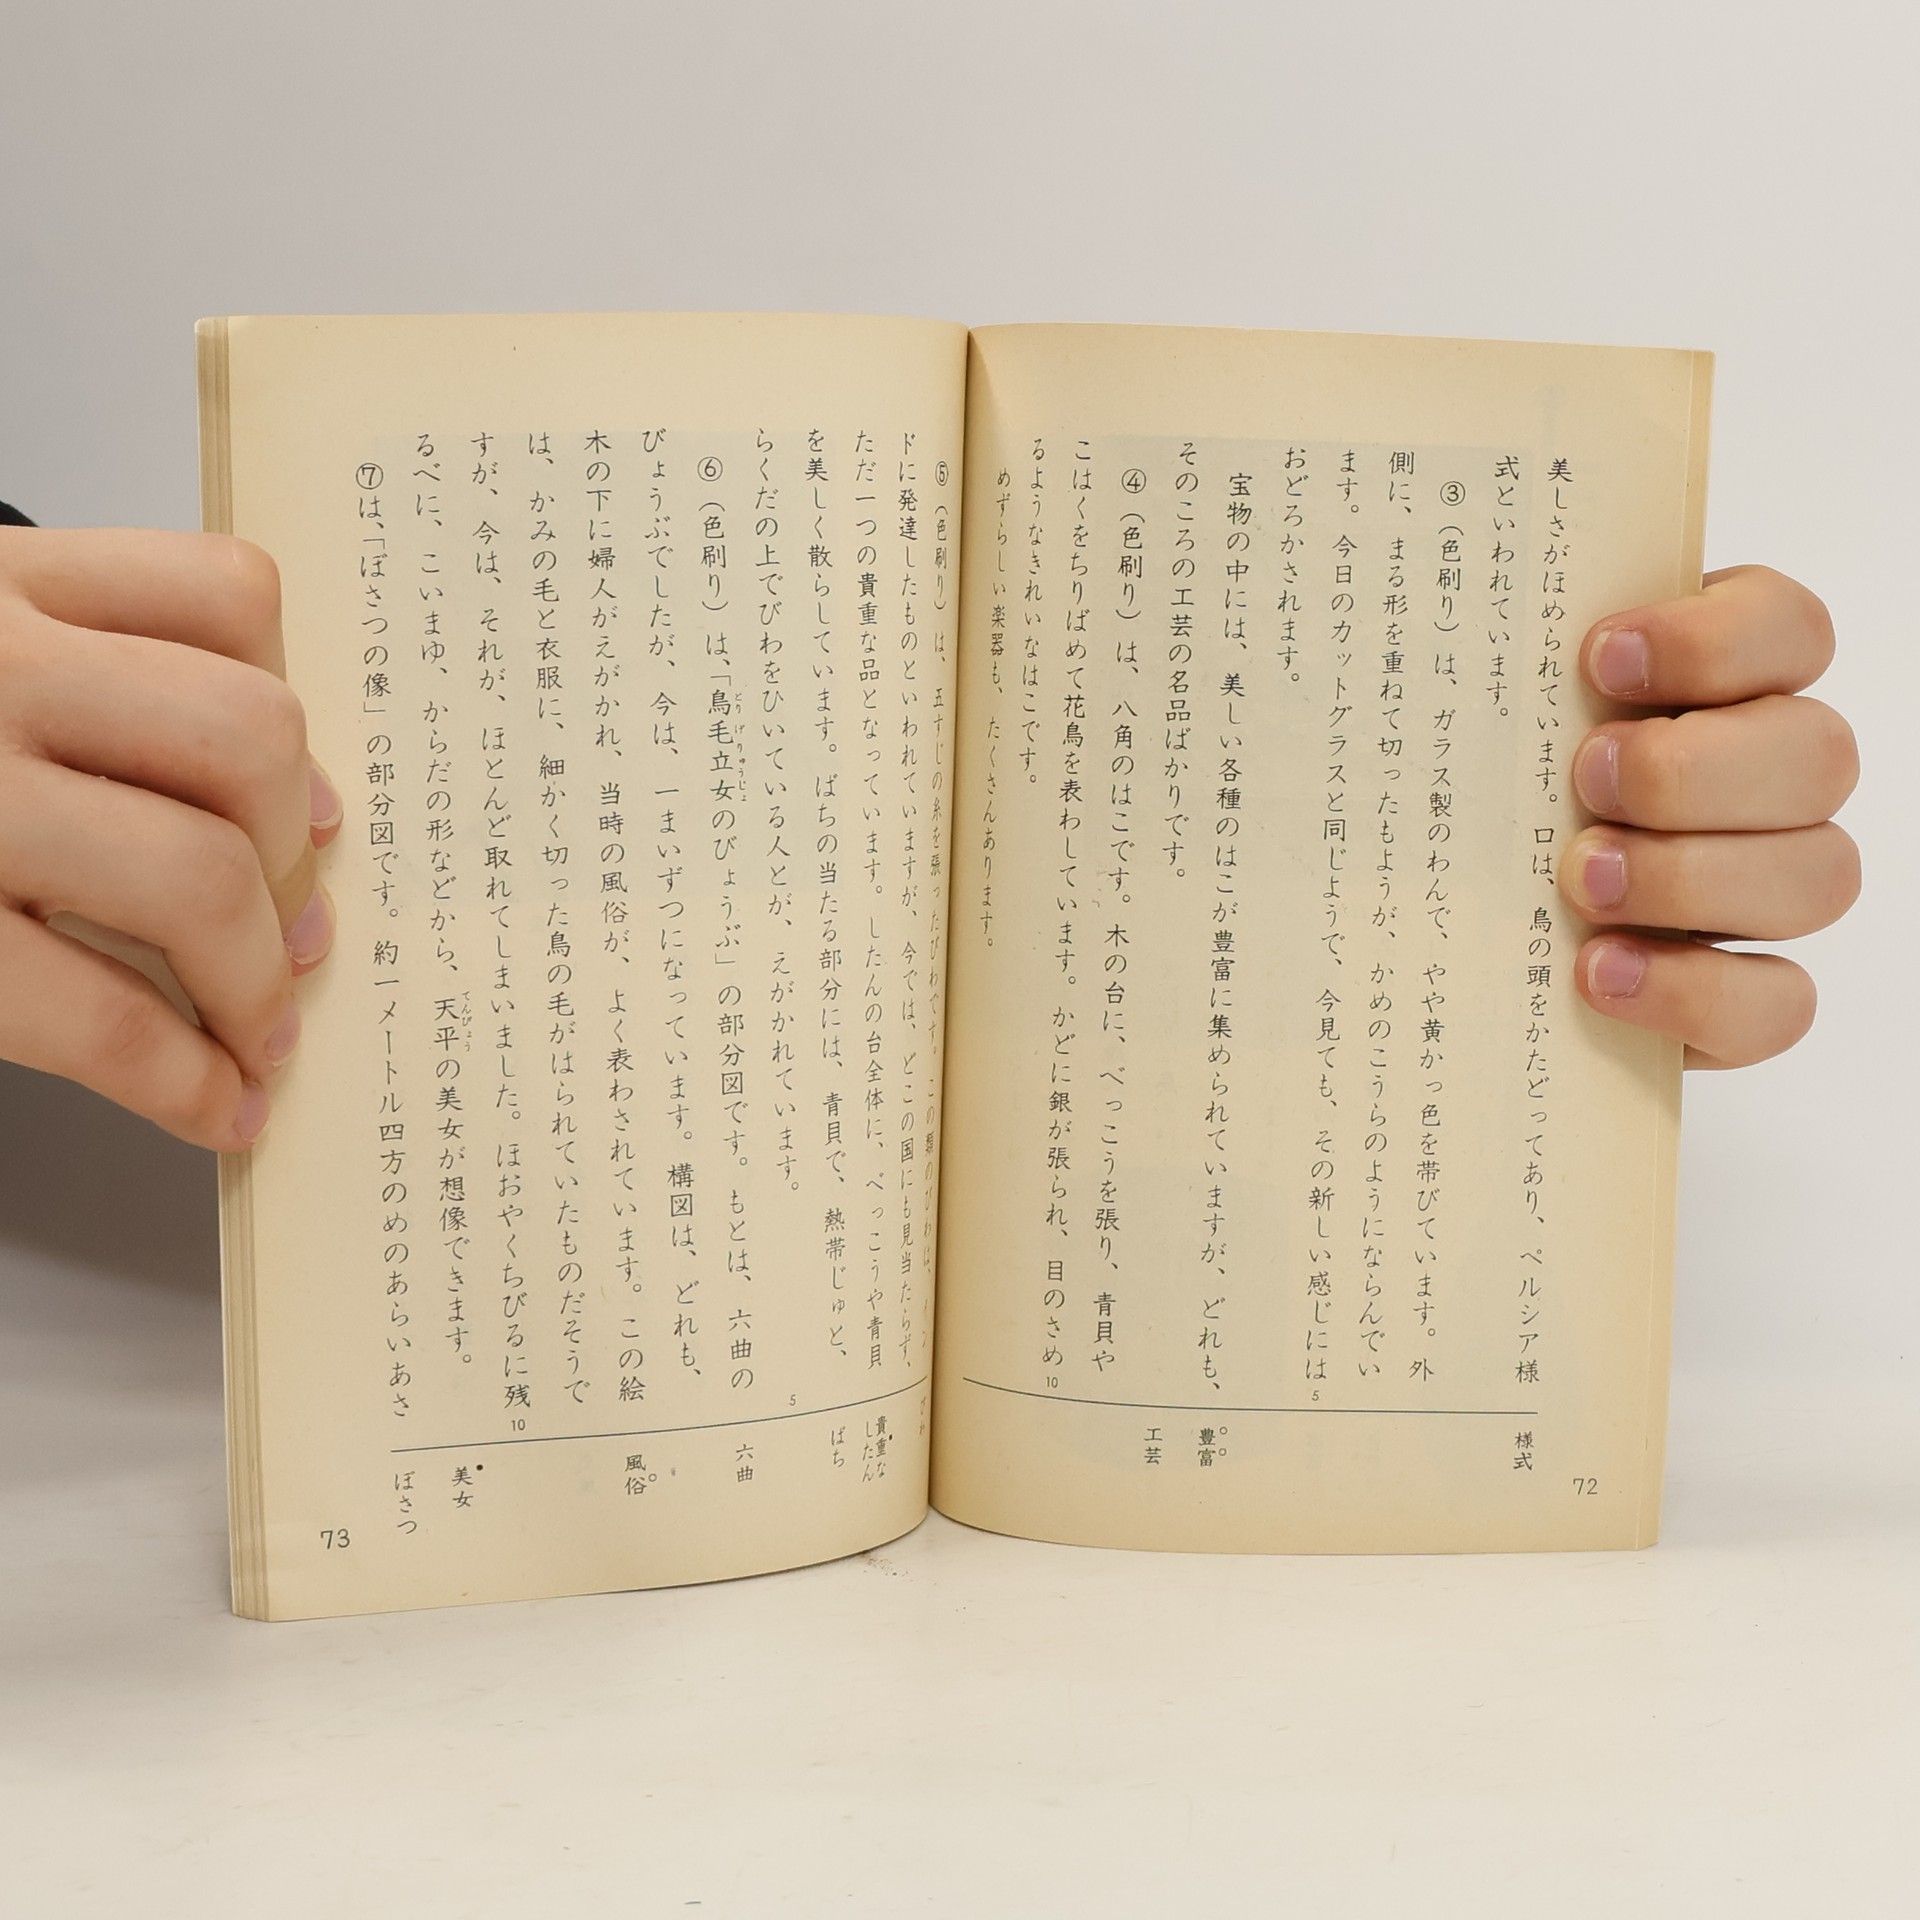 美しさがほめられています。口は、鳥の頭をかたどってあり、ペルシア様
式といわれています。
③（色刷り）は、ガラス製のわんで、やや黄かっ色を帯びています。外
側に、まる形を重ねて切ったもようが、かめのこうらのようにならんでい
ます。今日のカットグラスと同じようで、今見ても、その新しい感じには
おどろかされます。
宝物の中には、美しい各種のはこが豊富に集められていますが、どれも、
そのころの工芸の名品ばかりです。
④（色刷り）は、八角のはこです。木の台に、べっこうを張り、青貝や
こはくをちりばめて花鳥を表わしています。かどに銀が張られ、目のさめ
るようなきれいなはこです。
めずらしい楽器も、たくさんあります。
5
10
様式
豊富
工芸
72
⑤（色刷り）は、五すじの糸を張ったびわです。この類のびわは、
ドに発達したものといわれていますが、今では、どこの国にも見当たらず、
ただ一つの貴重な品となっています。したんの台全体に、べっこうや青貝
を美しく散らしています。ばちの当たる部分には、青貝で、熱帯じゅと、
らくだの上でびわをひいている人とが、えがかれています。
⑥（色刷り）は、「鳥毛立女のびょうぶ」の部分図です。もとは、六曲の
とりげりゅうじょ
びょうぶでしたが、今は、一まいずつになっています。構図は、どれも、
木の下に婦人がえがかれ、当時の風俗が、よく表わされています。この絵
は、かみの毛と衣服に、細かく切った鳥の毛がはられていたものだそうで
すが、今は、それが、ほとんど取れてしまいました。ほおやくちびるに残
るべに、こいまゆ、からだの形などから、天平の美女が想像できます。
てんぴょう
⑦は、「ぼさつの像」の部分図です。約一メートル四方のめのあらいあさ
5
10
びわ
貴重な
したん
ばち
六曲
風俗
美女
ぼさつ
73